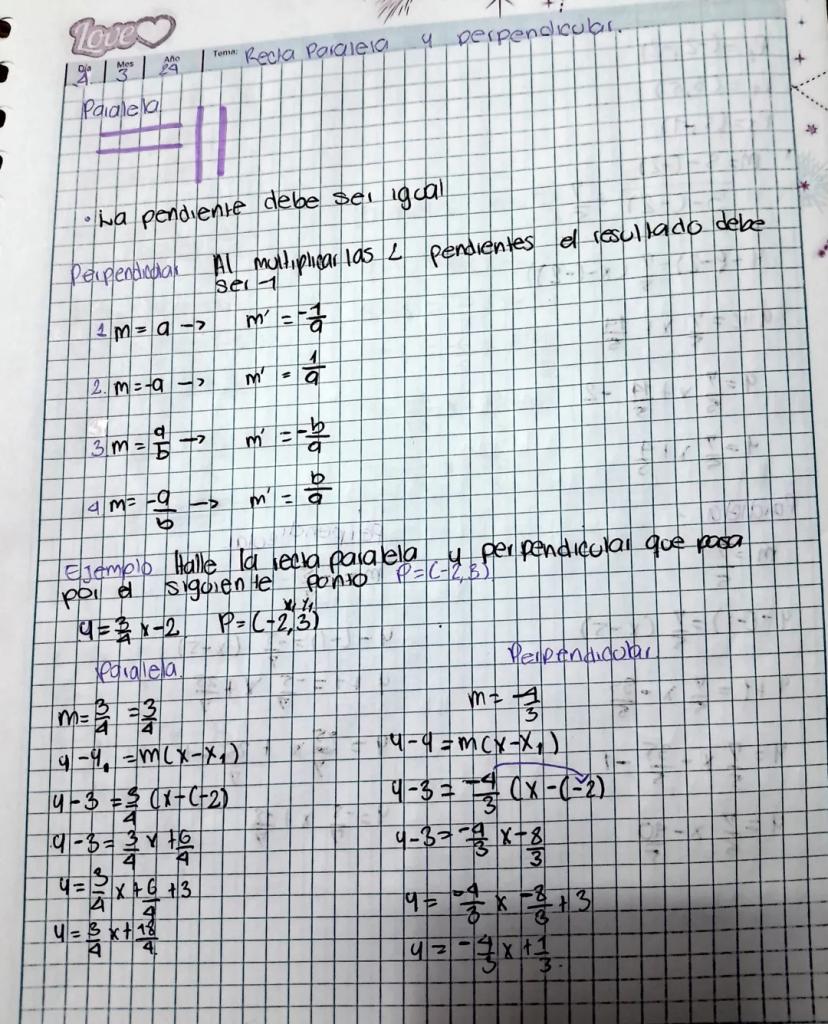 Love
Día 4 Mes 3 Año 24 Tema: Recta Paralela y perpendicular.
Paralela
· La pendiente debe ser igual
Perpendicular Al multiplicar las 2 pendientes el resultado debe
ser -1
1 m = a -> m' = -1/a
2. m = -a -> m' = 1/a
3 m = a/b -> m' = -b/a
4 m = -a/b -> m' = b/a
Ejemplo Halle la recta paralela y perpendicular que pasa
por el siguiente punto P=(-2,3)
y = 3/4 x - 2 P=(-2,3) x₁ y₁
Paralela.
m = 3/4 = 3/4
y - y₁ = m(x - x₁)
y - 3 = 3/4 (x - (-2)
y - 3 = 3/4 x + 6/4
y = 3/4 x + 6/4 + 3
y = 3/4 x + 18/4
Perpendicular
m = -4/3
y - y = m(x - x₁)
y - 3 = -4/3 (x - (-2)
y - 3 = -4/3 x - 8/3
y = -4/3 x -8/3 + 3
y = -4/3 x + 1/3.